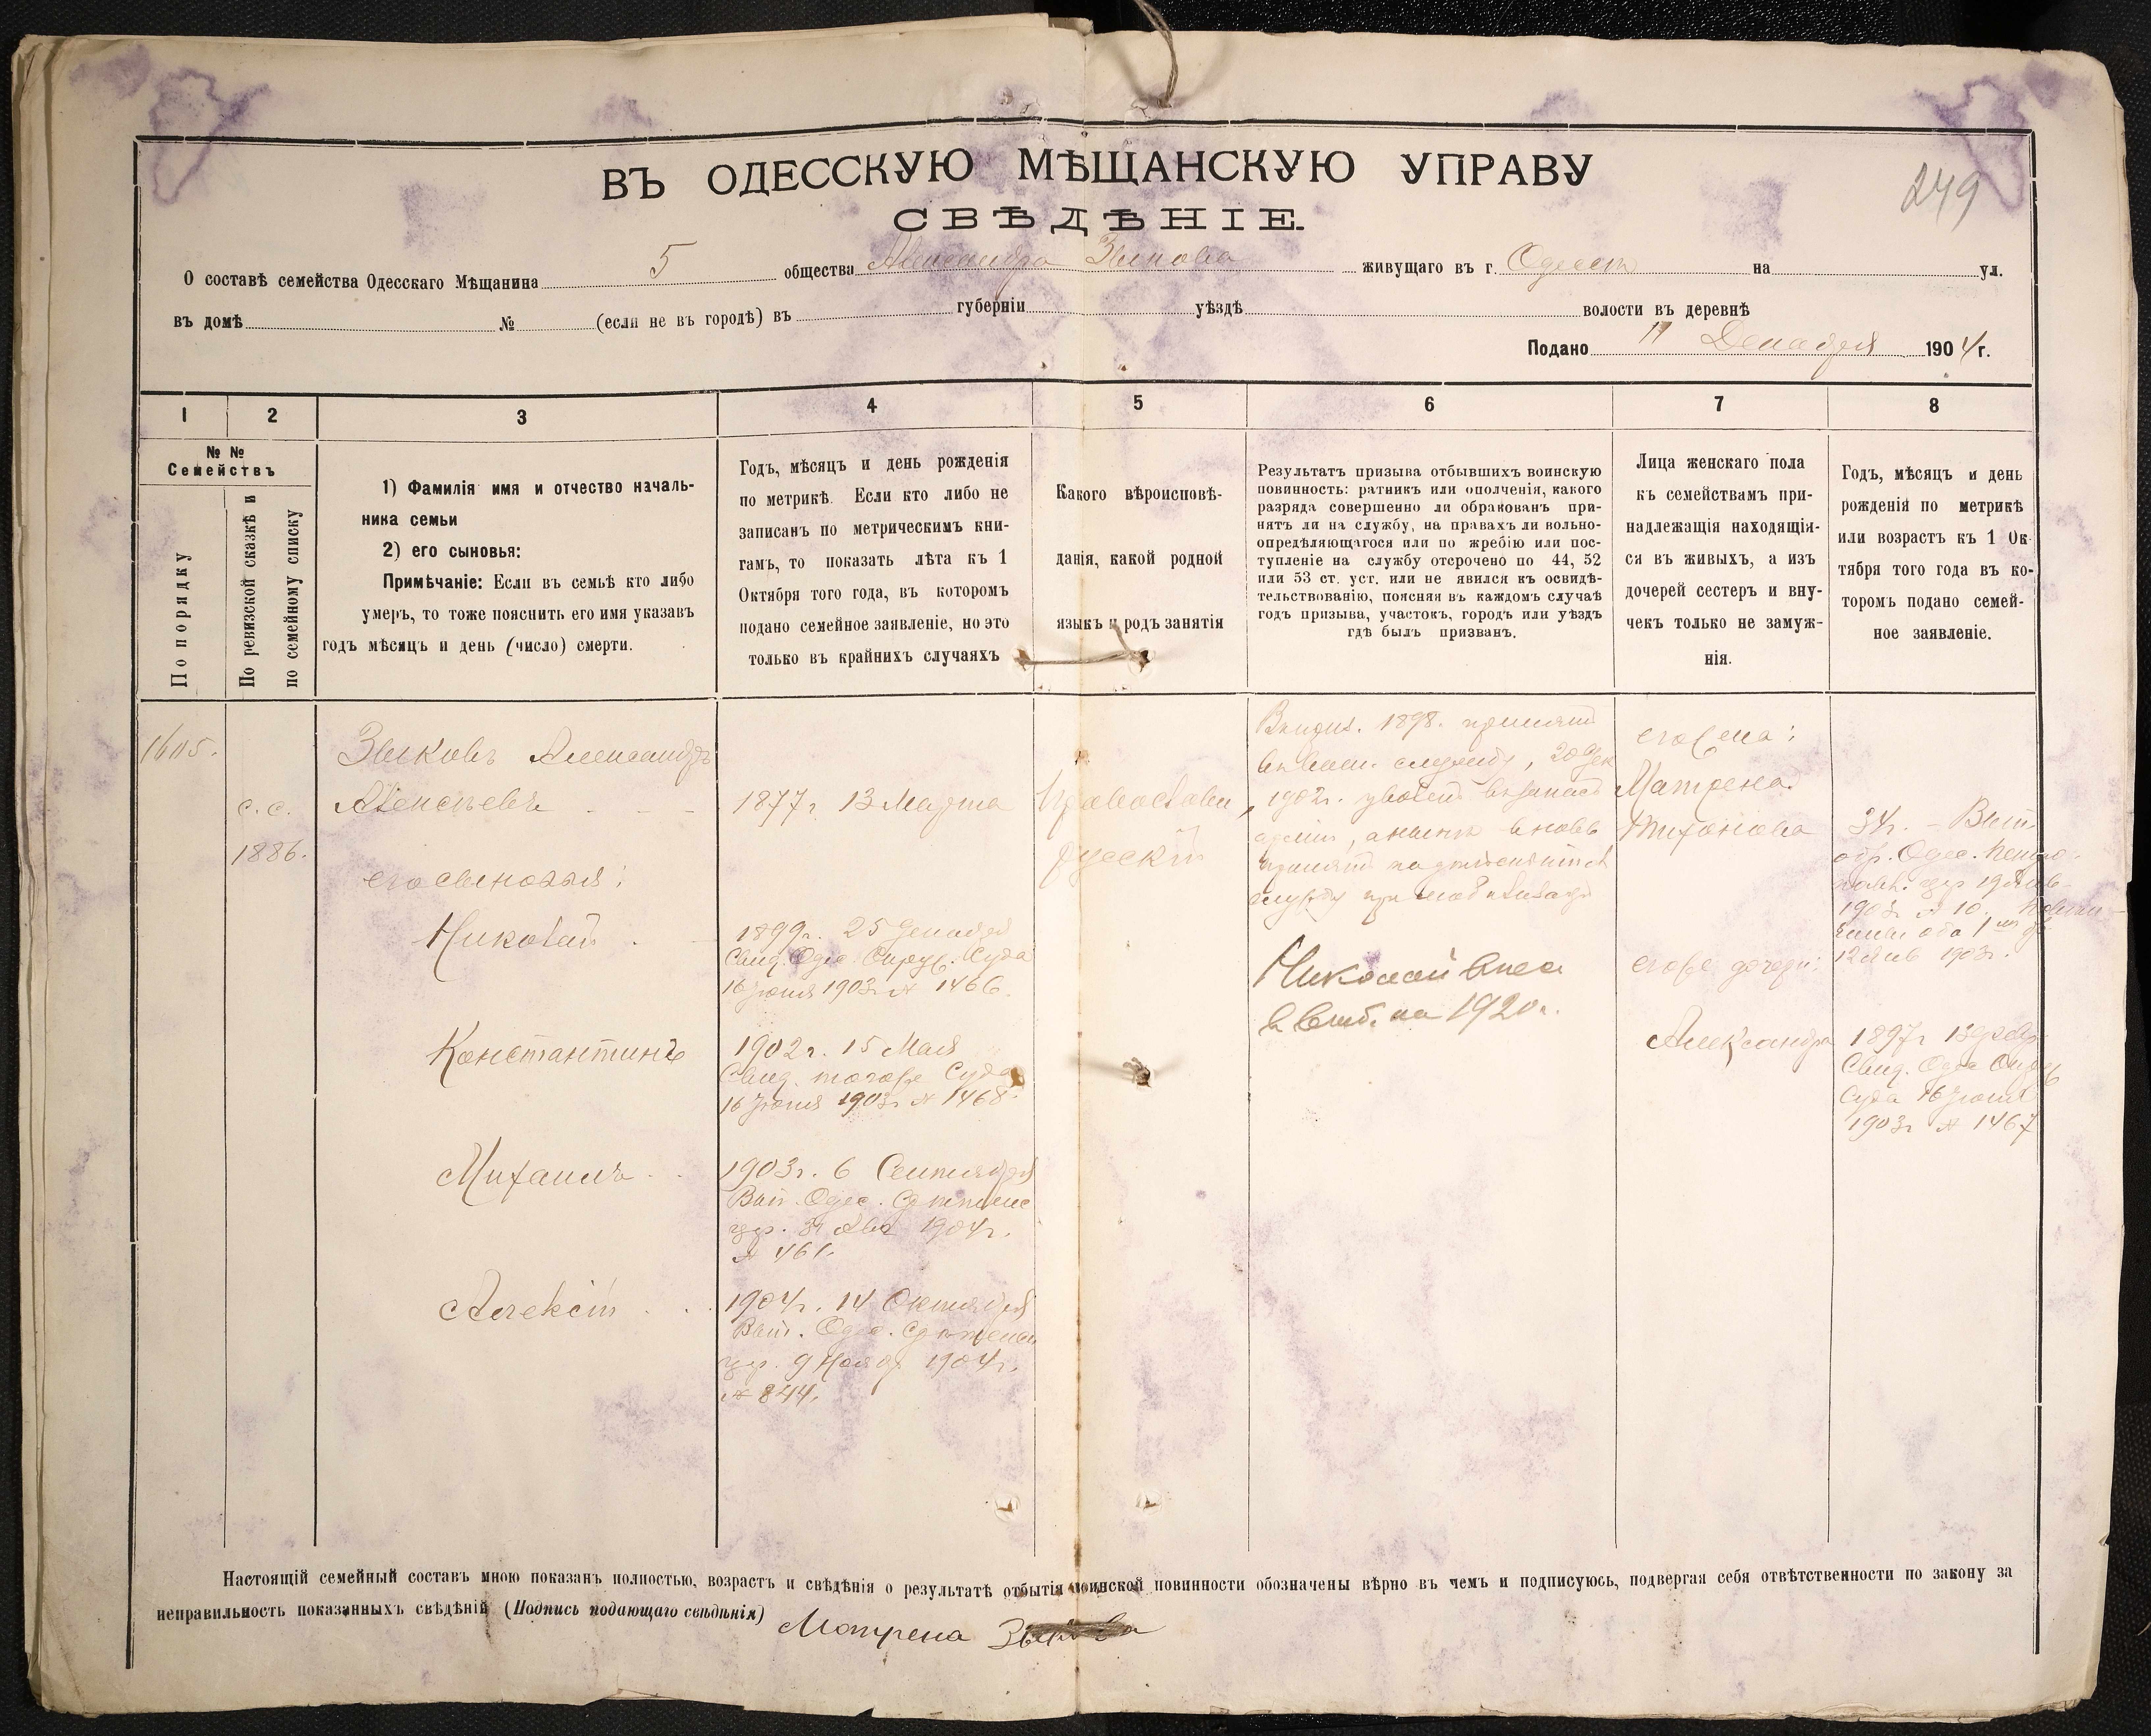 249
ВЪ ОДЕССКУЮ МѢЩАНСКУЮ УПРАВУ
СВѢДѢНІЕ.
О составѣ семейства Одесскаго Мѣщанина 5 общества Александра Зыкова живущаго въ г. Одессѣ на ул.
въ домѣ № (если не въ городѣ) въ губерніи уѣздѣ волости въ деревнѣ
Подано 11 Декабря 1904 г.
1 2 3 4 5 6 7 8
№ №
Семействъ
По порядку
По ревизской сказкѣ и
по семейному списку
1) Фамилія имя и отчество началь-
ника семьи
2) его сыновья:
Примѣчаніе: Если въ семьѣ кто либо
умеръ, то тоже пояснить его имя указавъ
годъ мѣсяцъ и день (число) смерти.
Годъ, мѣсяцъ и день рожденія
по метрикѣ. Если кто либо не
записанъ по метрическимъ кни-
гамъ, то показать лѣта къ 1
Октября того года, въ которомъ
подано семейное заявленіе, но это
только въ крайнихъ случаяхъ
Какого вѣроисповѣ-
данія, какой родной
языкъ и родъ занятія
Результатъ призыва отбывшихъ воинскую
повинность: ратникъ или ополченія, какого
разряда совершенно ли обракованъ при-
нятъ ли на службу, на правахъ ли вольно-
опредѣляющагося или по жребію или пос-
тупленіе на службу отсрочено по 44, 52
или 53 ст. уст. или не явился къ освидѣ-
тельствованію, поясняя въ каждомъ случаѣ
годъ призыва, участокъ, городъ или уѣздъ
гдѣ былъ призванъ.
Лица женскаго пола
къ семействамъ при-
надлежащія находящія-
ся въ живыхъ, а изъ
дочерей сестеръ и вну-
чекъ только не замуж-
нія.
Годъ, мѣсяцъ и день
рожденія по метрикѣ
или возрастъ къ 1 Ок-
тября того года въ ко-
торомъ подано семей-
ное заявленіе.
1605.
с.с.
1886.
Зыковъ Александръ
Алексѣевъ
его сыновья:
Николай
Константинъ
Михаилъ
Алексѣй
1877 г. 13 Марта
1899 г. 25 Декабря
Свид. Одес. Окруж. Суда
16 Іюня 1903 г. № 1466.
1902 г. 15 Мая
Свид. тогоже Суда
16 Іюня 1903 г. № 1468.
1903 г. 6 Сентября
Вып. Одес. Срѣтенс
цер. 31 1904 г.
№ 461.
1904 г. 14 Октября
Вып. Одес. Срѣтенск
цер. 9 Нояб. 1904 г.
№ 844.
Православн,
русскій
1898. принятъ
службу, 20 Дек
1902 г. уволенъ въ запасъ
арміи, а нынѣ вновь
принятъ на дѣйствит.
службу при мобилизаціи
Николай внес.
в на 1920 г.
его жена:
Матрена
Тихонова
его же дочери:
Александра
34 г. - Вып.
Одес.
цер 19 Янв
1903 г. № 10.
12 Янв 1903 г.
1897 г.
Свид. Одес Окруж
Суда 16 Іюня
1903 г. № 1467
Настоящій семейный составъ мною показанъ полностью, возрастъ и свѣдѣнія о результатѣ отбытія воинской повинности обозначены вѣрно въ чемъ и подписуюсь, подвергая себя отвѣтственности по закону за
неправильность показанныхъ свѣдѣній (Подпись подающаго свѣдѣнія) Матрена Зыкова